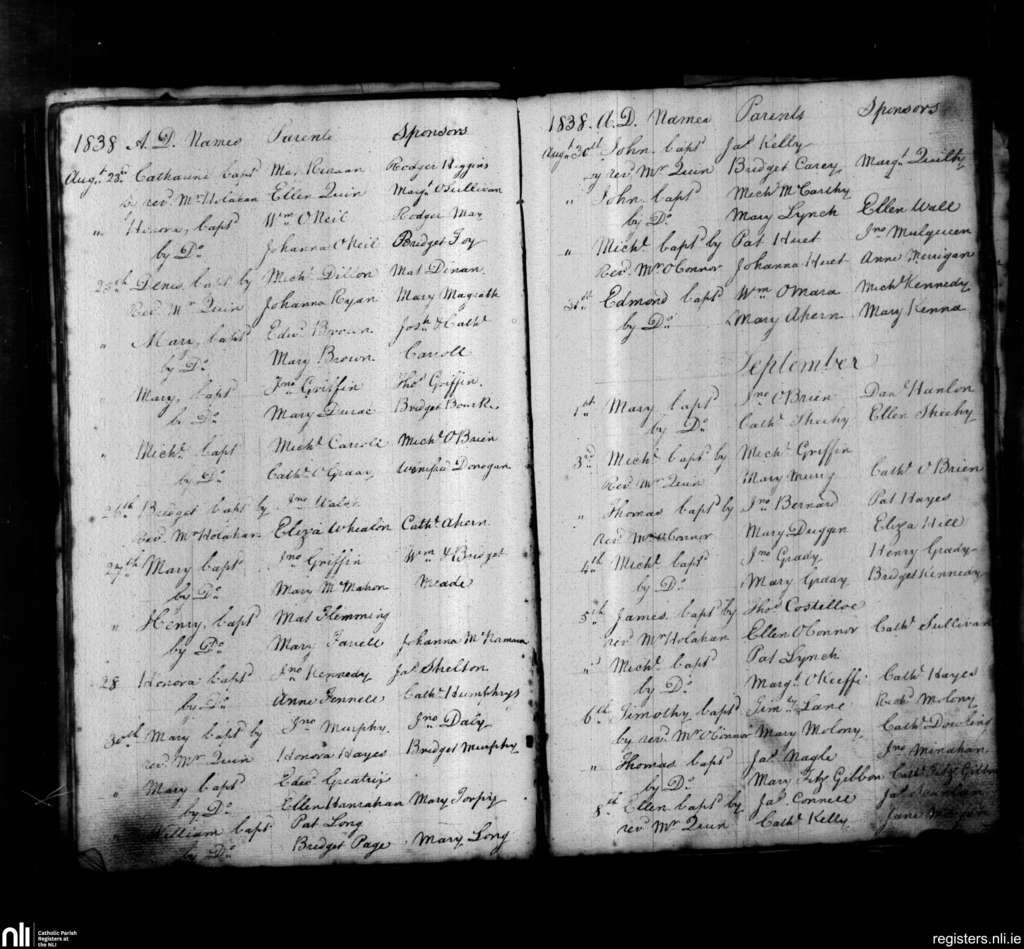 1838 A. D. Names Parents Sponsors
Augt 23d Catharine bapt Mat Renaan Rodger Higgins
by revd Mr Holahan Ellen Quin Margt O'Sullivan
" Honora, bapt Wm O'Neil Rodger May
by Do Johanna O'Neil Bridget Foy
25th Denis, bapt by Michl Dillon Mat Dinan
Revd Mr Quin Johanna Ryan Mary Magrath
" Mary, bapt Edwd Brown Josh & Cathe
by Do Mary Brown Carroll
Mary, bapt Jno Griffin Thos Griffin
by Do Mary Durac Bridget Bourke
Michl bapt Michl Carroll Michl O'Brien
by Do Cathe O'Grady Winifred Donegan
26th Bridget bapt by Jno Walsh
Revd Mr Holahan Eliza Whealon Cathe Ahern
27th Mary bapt Jno Griffin Wm & Bridget
by Do Mary McMahon Reade
" Henry, bapt Mat Flemming
by Do Mary Farrell Johanna McNamara
28 Honora bapt Jno Kennedy Jas Shelton
by Do Anne Fennell Cathe Humphrys
30th Mary bapt by Jno Murphy Jno Daly
revd Mr Quin Honora Hayes Bridget Murphy
" Mary bapt Edwd
by Do Ellen Hanrahan Mary Torpy
William bapt Pat Long
by Do Bridget Page Mary Long
1838. A. D. Names Parents Sponsors
Augt 30th John bapt Jas Kelly
by revd Mr Quin Bridget Carey Margt Quilty
" John bapt Michl McCarthy
by Do Mary Lynch Ellen Wall
" Michl bapt by Pat Huet Jno Mulqueen
Revd Mr O'Connor Johanna Huet Anne Merrigan
31st Edmond bapt Wm OMara Michl Kennedy
by Do Mary Ahern Mary Kenna
September
1st Mary bapt Jno O'Brien Danl Hanlon
by Do Cathe Sheehy Ellen Sheehy
3rd Michl bapt by Michl Griffin
Revd Mr Quin Mary Cathe O'Brien
" Thomas bapt by Jno Bernard Pat Hayes
revd Mr O'Connor Mary Duggan Eliza Hill
4th Michl bapt Jno Grady Henry Grady
by Do Mary Grady Bridget Kennedy
5th James bapt by Thos Costelloe
revd Mr Holahan Ellen O'Connor Cathe Sullivan
" Michl bapt Pat Lynch
by Do Margt O'Keeffe Cathe Hayes
6th Timothy bapt Timty Lane Molony
by revd Mr O'Connor Mary Molony Cathe Dowling
" Thomas bapt Jas Nagle Jno Minahan
by Do Mary FitzGibbon Cathe FitzGibbon
8th Ellen bapt by Jas Connell Jas Scanlan
revd Mr Quin Cathe Kelly Jane
nli Catholic Parish
Registers at
the NLI
registers.nli.ie